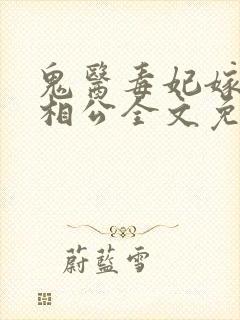 鬼醫毒妃嫁
相公全文免
蔚藍雪